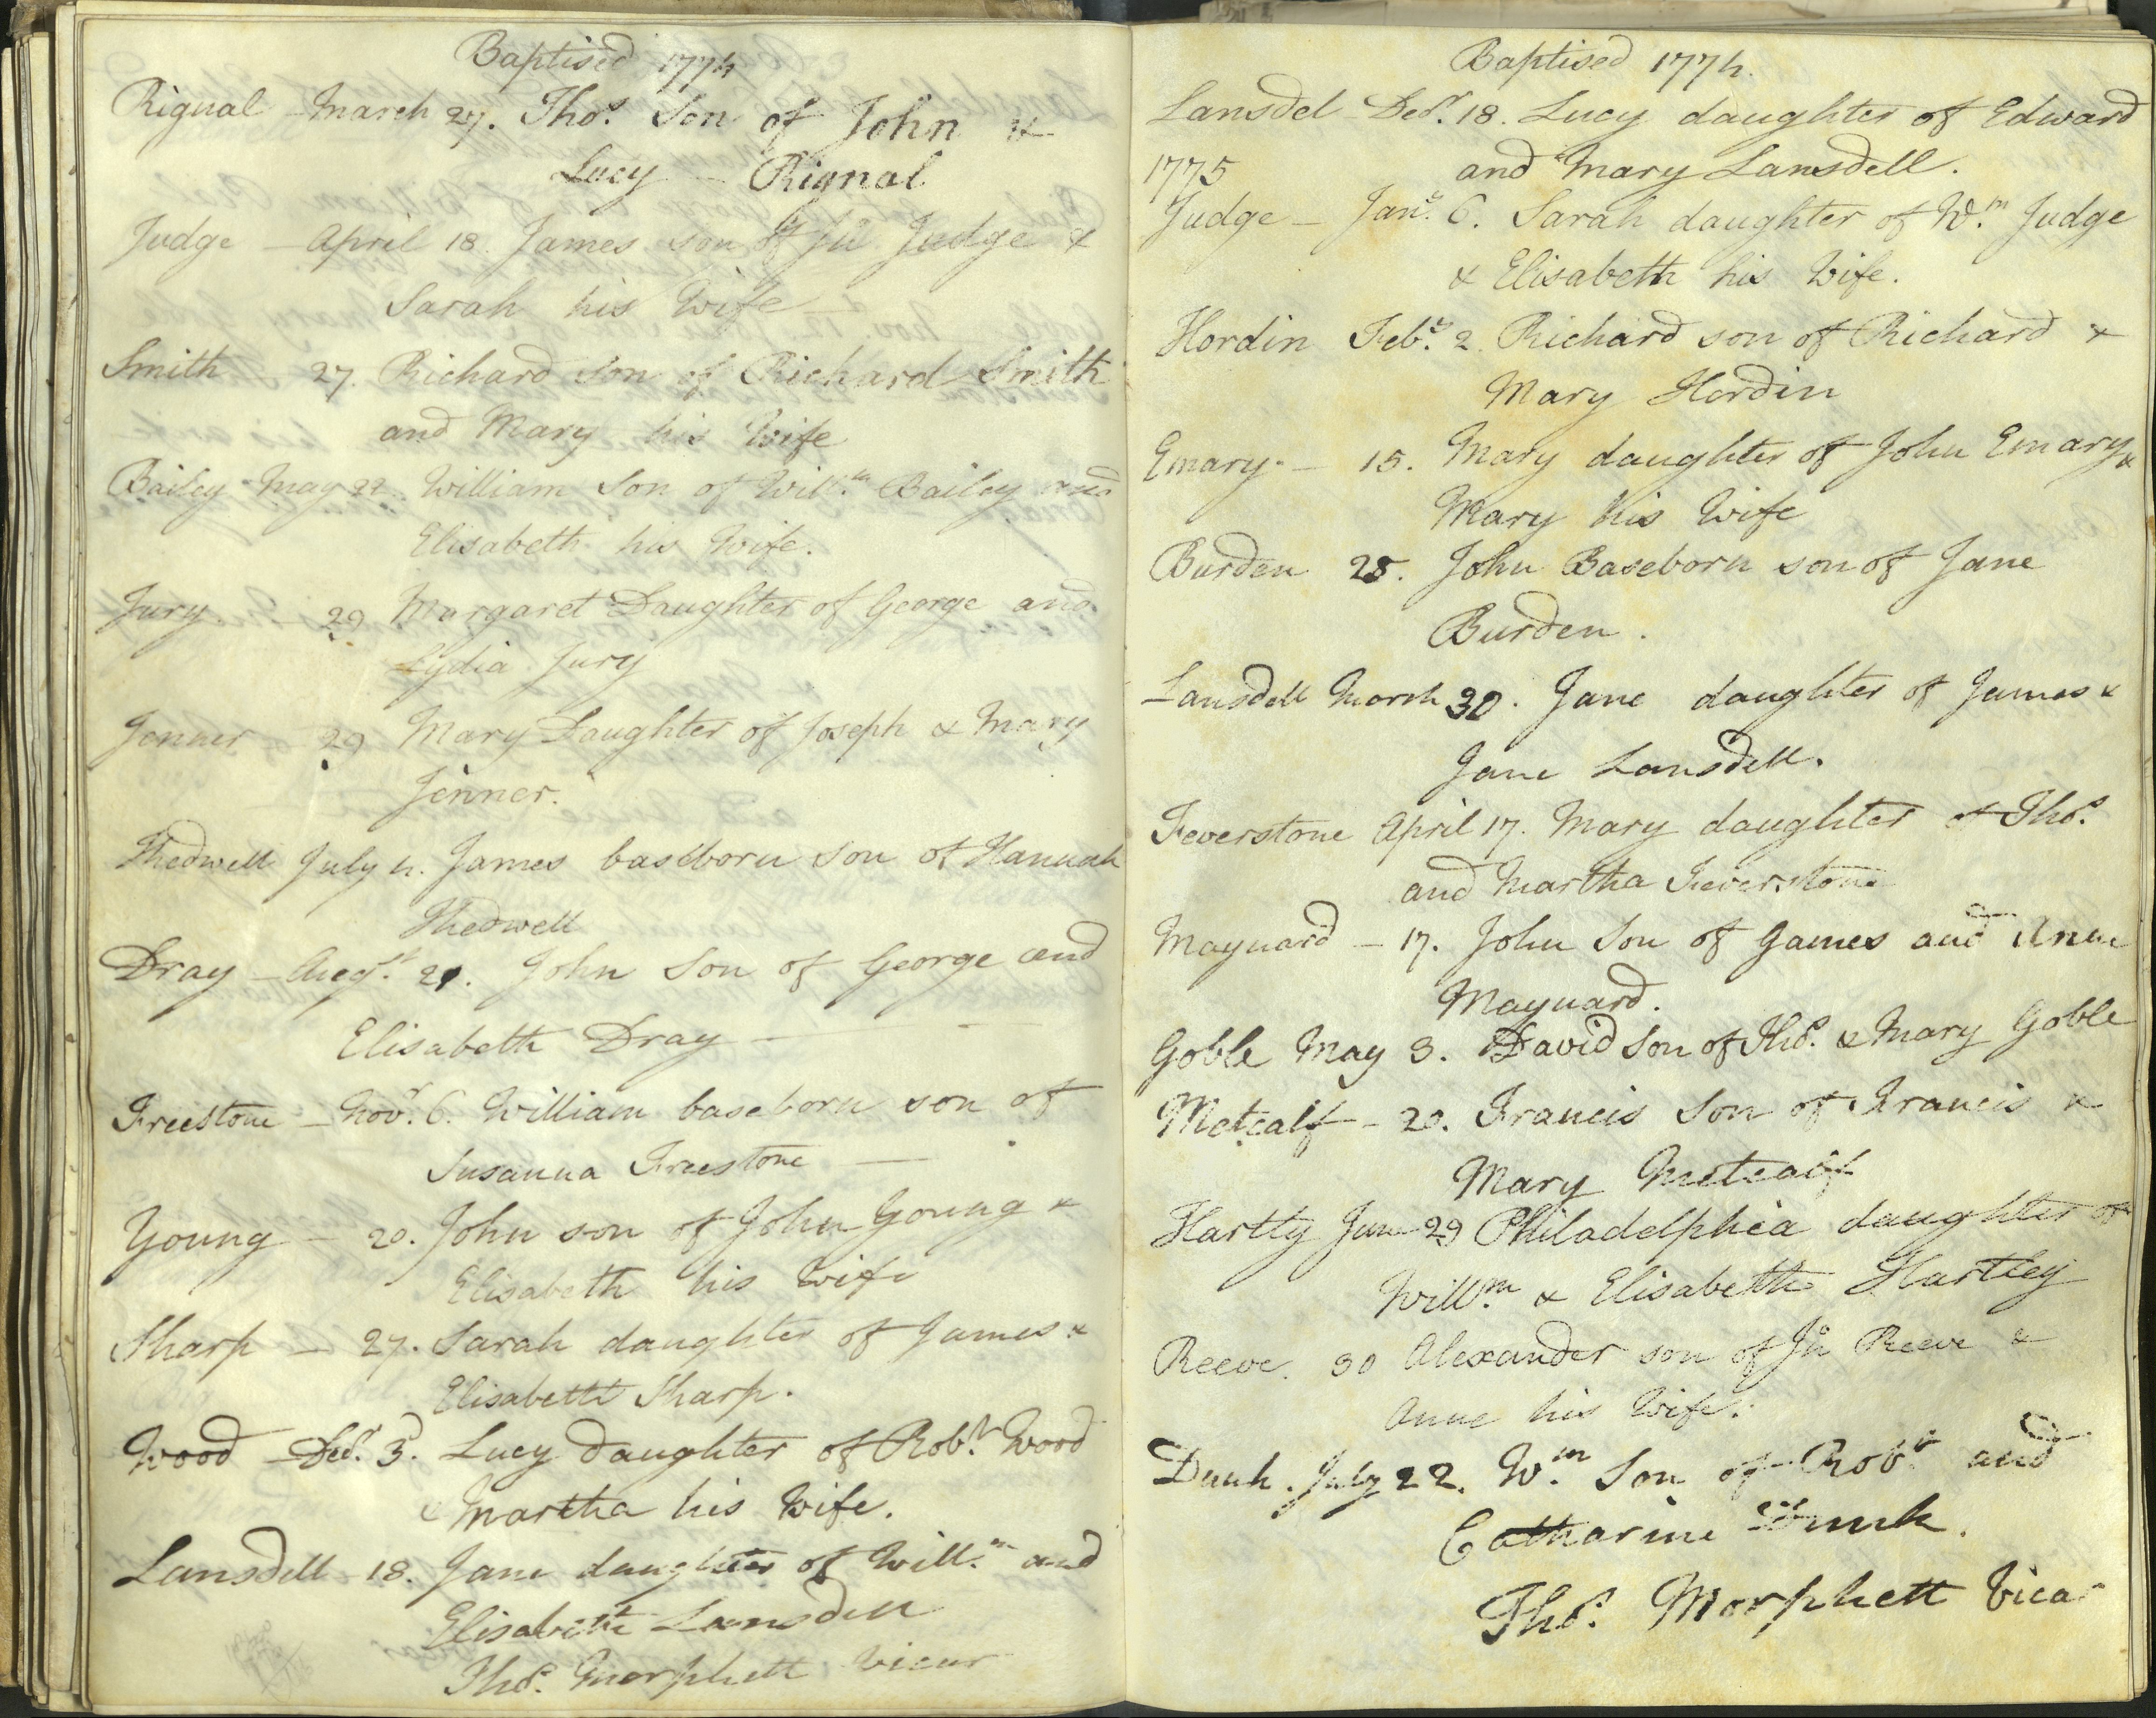 Baptised 1774
Rignal - March 27. Thos. Son of John &
Lucy - Rignal
Judge - April 18. James son of Jn Judge &
Sarah his Wife -
Smith - 27. Richard son of Richard Smith
and Mary his Wife
Bailey May 22. William Son of Willm. Bailey and
Elisabeth his Wife.
Jury 29 Margaret Daughter of George and
Lydia Jury
Jenner - 29 Mary Daughter of Joseph & Mary
Jenner.
Thedwell July 4. James baseborn Son of Hannah
Thedwell
Dray - Augst. 21. John Son of George and
Elisabeth Dray -
Freestone - Novr. 6. William baseborn son of
Susanna Freestone -
Young - 20. John son of John Young &
Elisabeth his Wife
Sharp - 27. Sarah daughter of James &
Elisabeth Sharp.
Wood - Decr. 3. Lucy daughter of Robt. Wood
& Martha his Wife.
Lansdell - 18. Jane daughter of Willm. and
Elisabeth Lansdell
Thos. Morphett Vicar
Baptised 1774.
Lansdel - Decr. 18. Lucy daughter of Edward
and Mary Lansdell.
1775
Judge - Jany. 6. Sarah daughter of Wm. Judge
& Elisabeth his Wife.
Hordin Feby. 2. Richard son of Richard &
Mary Hordin
Emary - 15. Mary daughter of John Emary &
Mary his Wife
Burden 28. John Baseborn son of Jane
Burden.
Lansdell March 30. Jane daughter of James &
Jane Lansdell.
Feverstone April 17. Mary daughter of Thos.
and Martha Feverstone
Maynard - 17. John Son of James and Anne
Maynard.
Goble May 3. David Son of Thos. & Mary Goble
Metcalf - 20. Francis Son of Francis &
Mary Metcalf
Hartly June 29 Philadelphia daughter of
Willm. & Elisabeth Hartley
Reeve. 30 Alexander son of Jn Reeve &
Anne his Wife.
Dunk. July 22. Wm. Son of Robt. and
Catharine Dunk.
Thos. Morphett Vicar